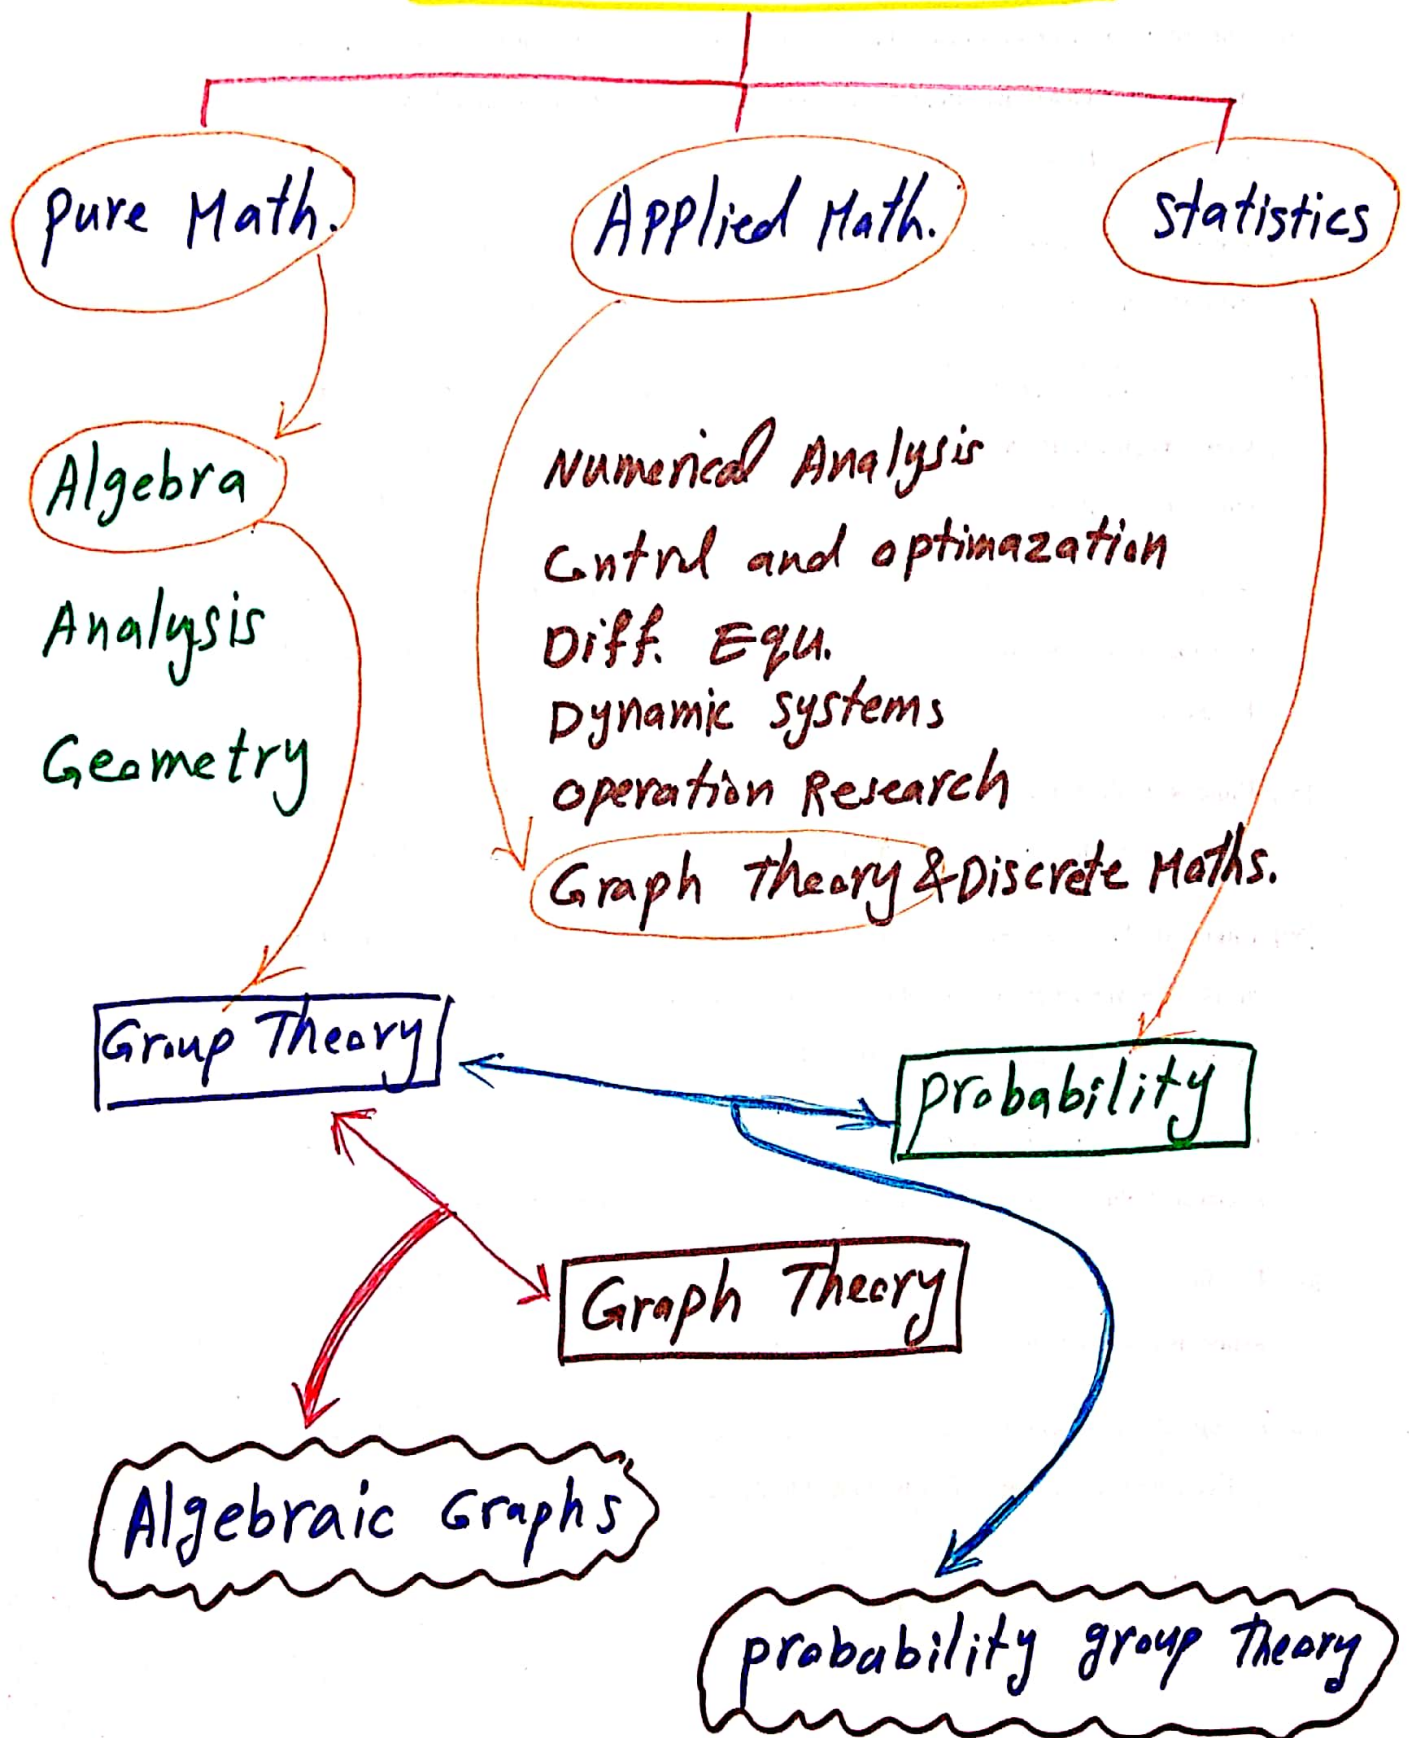 Pure Math.
Applied Math.
Statistics
Algebra
Analysis
Geometry
Numerical Analysis
Control and optimazation
Diff. Equ.
Dynamic Systems
Operation Research
Graph Theory & Discrete Maths.
Group Theory
Probability
Graph Theory
Algebraic Graphs
probability group Theory